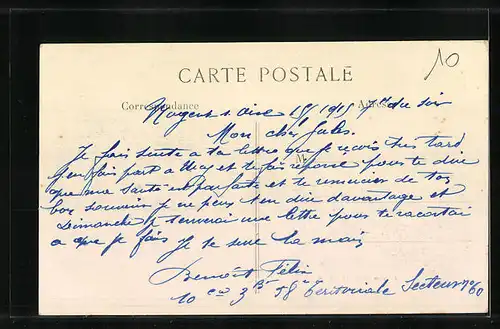 10
CARTE POSTALE
Correspondance
Adresse
Nogent s. Oise 1915 7h du soir
Mon cher Jules.
Je fais suite a ta lettre que je reçois tres tard
fais part a et te fais reponse pour te dire
que ma santé et parfaite et te remercier de ton
bon souvenir je ne peux t'en dire davantage et
Dimanche je tenverai une lettre pour te racontai
a que je fais Je te sere la main
Benoit Félix
10 cie 3 Bt 58e Territoriale Secteur no 60